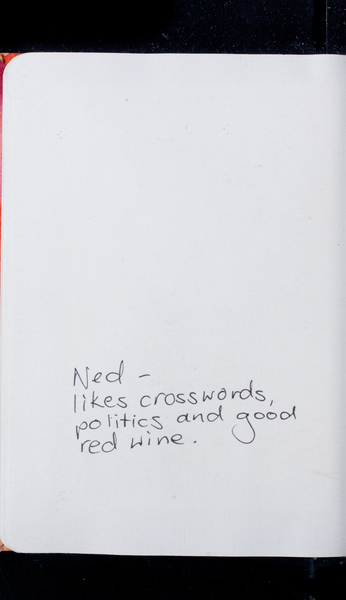 Ned -
likes crosswords,
politics and good
red wine.